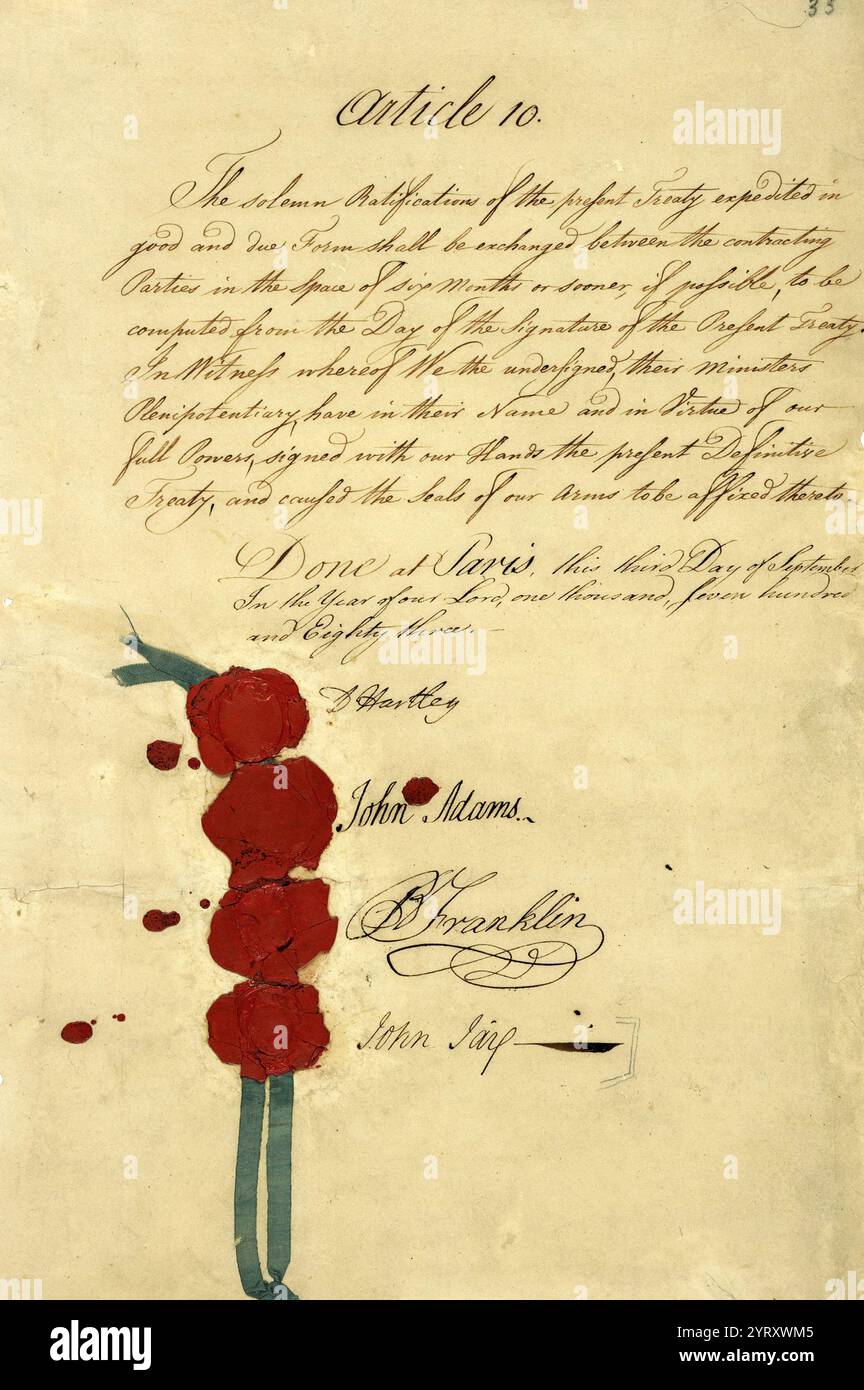 33
Article 10.
The solemn Ratifications of the present Treaty expedited in
good and due Form shall be exchanged between the contracting
Parties in the Space of six Months or sooner, if possible, to be
computed from the Day of the Signature of the Present Treaty.
In Witness whereof We the undersigned, their Ministers
Plenipotentiary, have in their Name and in Virtue of our
full Powers, signed with our Hands the present Definitive
Treaty, and caused the Seals of our Arms to be affixed thereto.
Done at Paris, this third Day of September
In the Year of our Lord, one thousand, seven hundred
and Eighty three.-
D Hartley
John Adams.
B Franklin
John Jay
alamy
a
alamy
Image ID: 2YRXWM5
www.alamy.com